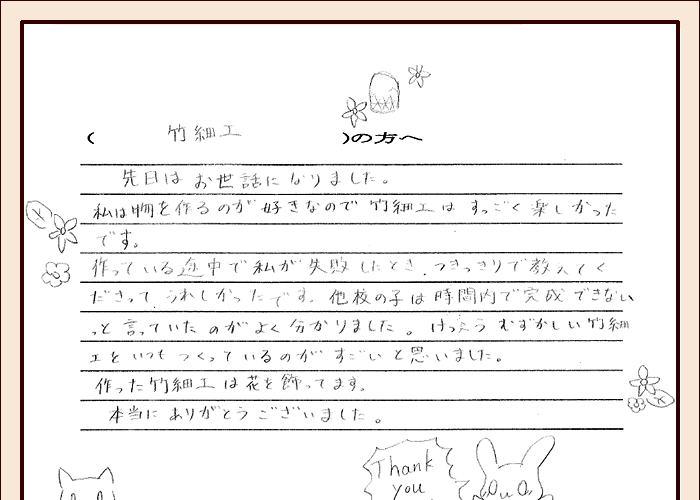 ( 竹細工 )の方へ
先日は お世話に なりました。
私は物を作るのが好きなので 竹細工は すっごく 楽しかった
です。
作っている途中で私が失敗したとき、つきっきりで教えてく
ださって、うれしかったです。他校の子は時間内で完成できない
っと言っていたのがよく分かりました。けっこうむずかしい竹細
工をいつもつくっているのがすごいと思いました。
作った竹細工は花を飾ってます。
本当に ありがとう ございました。
Thank
you